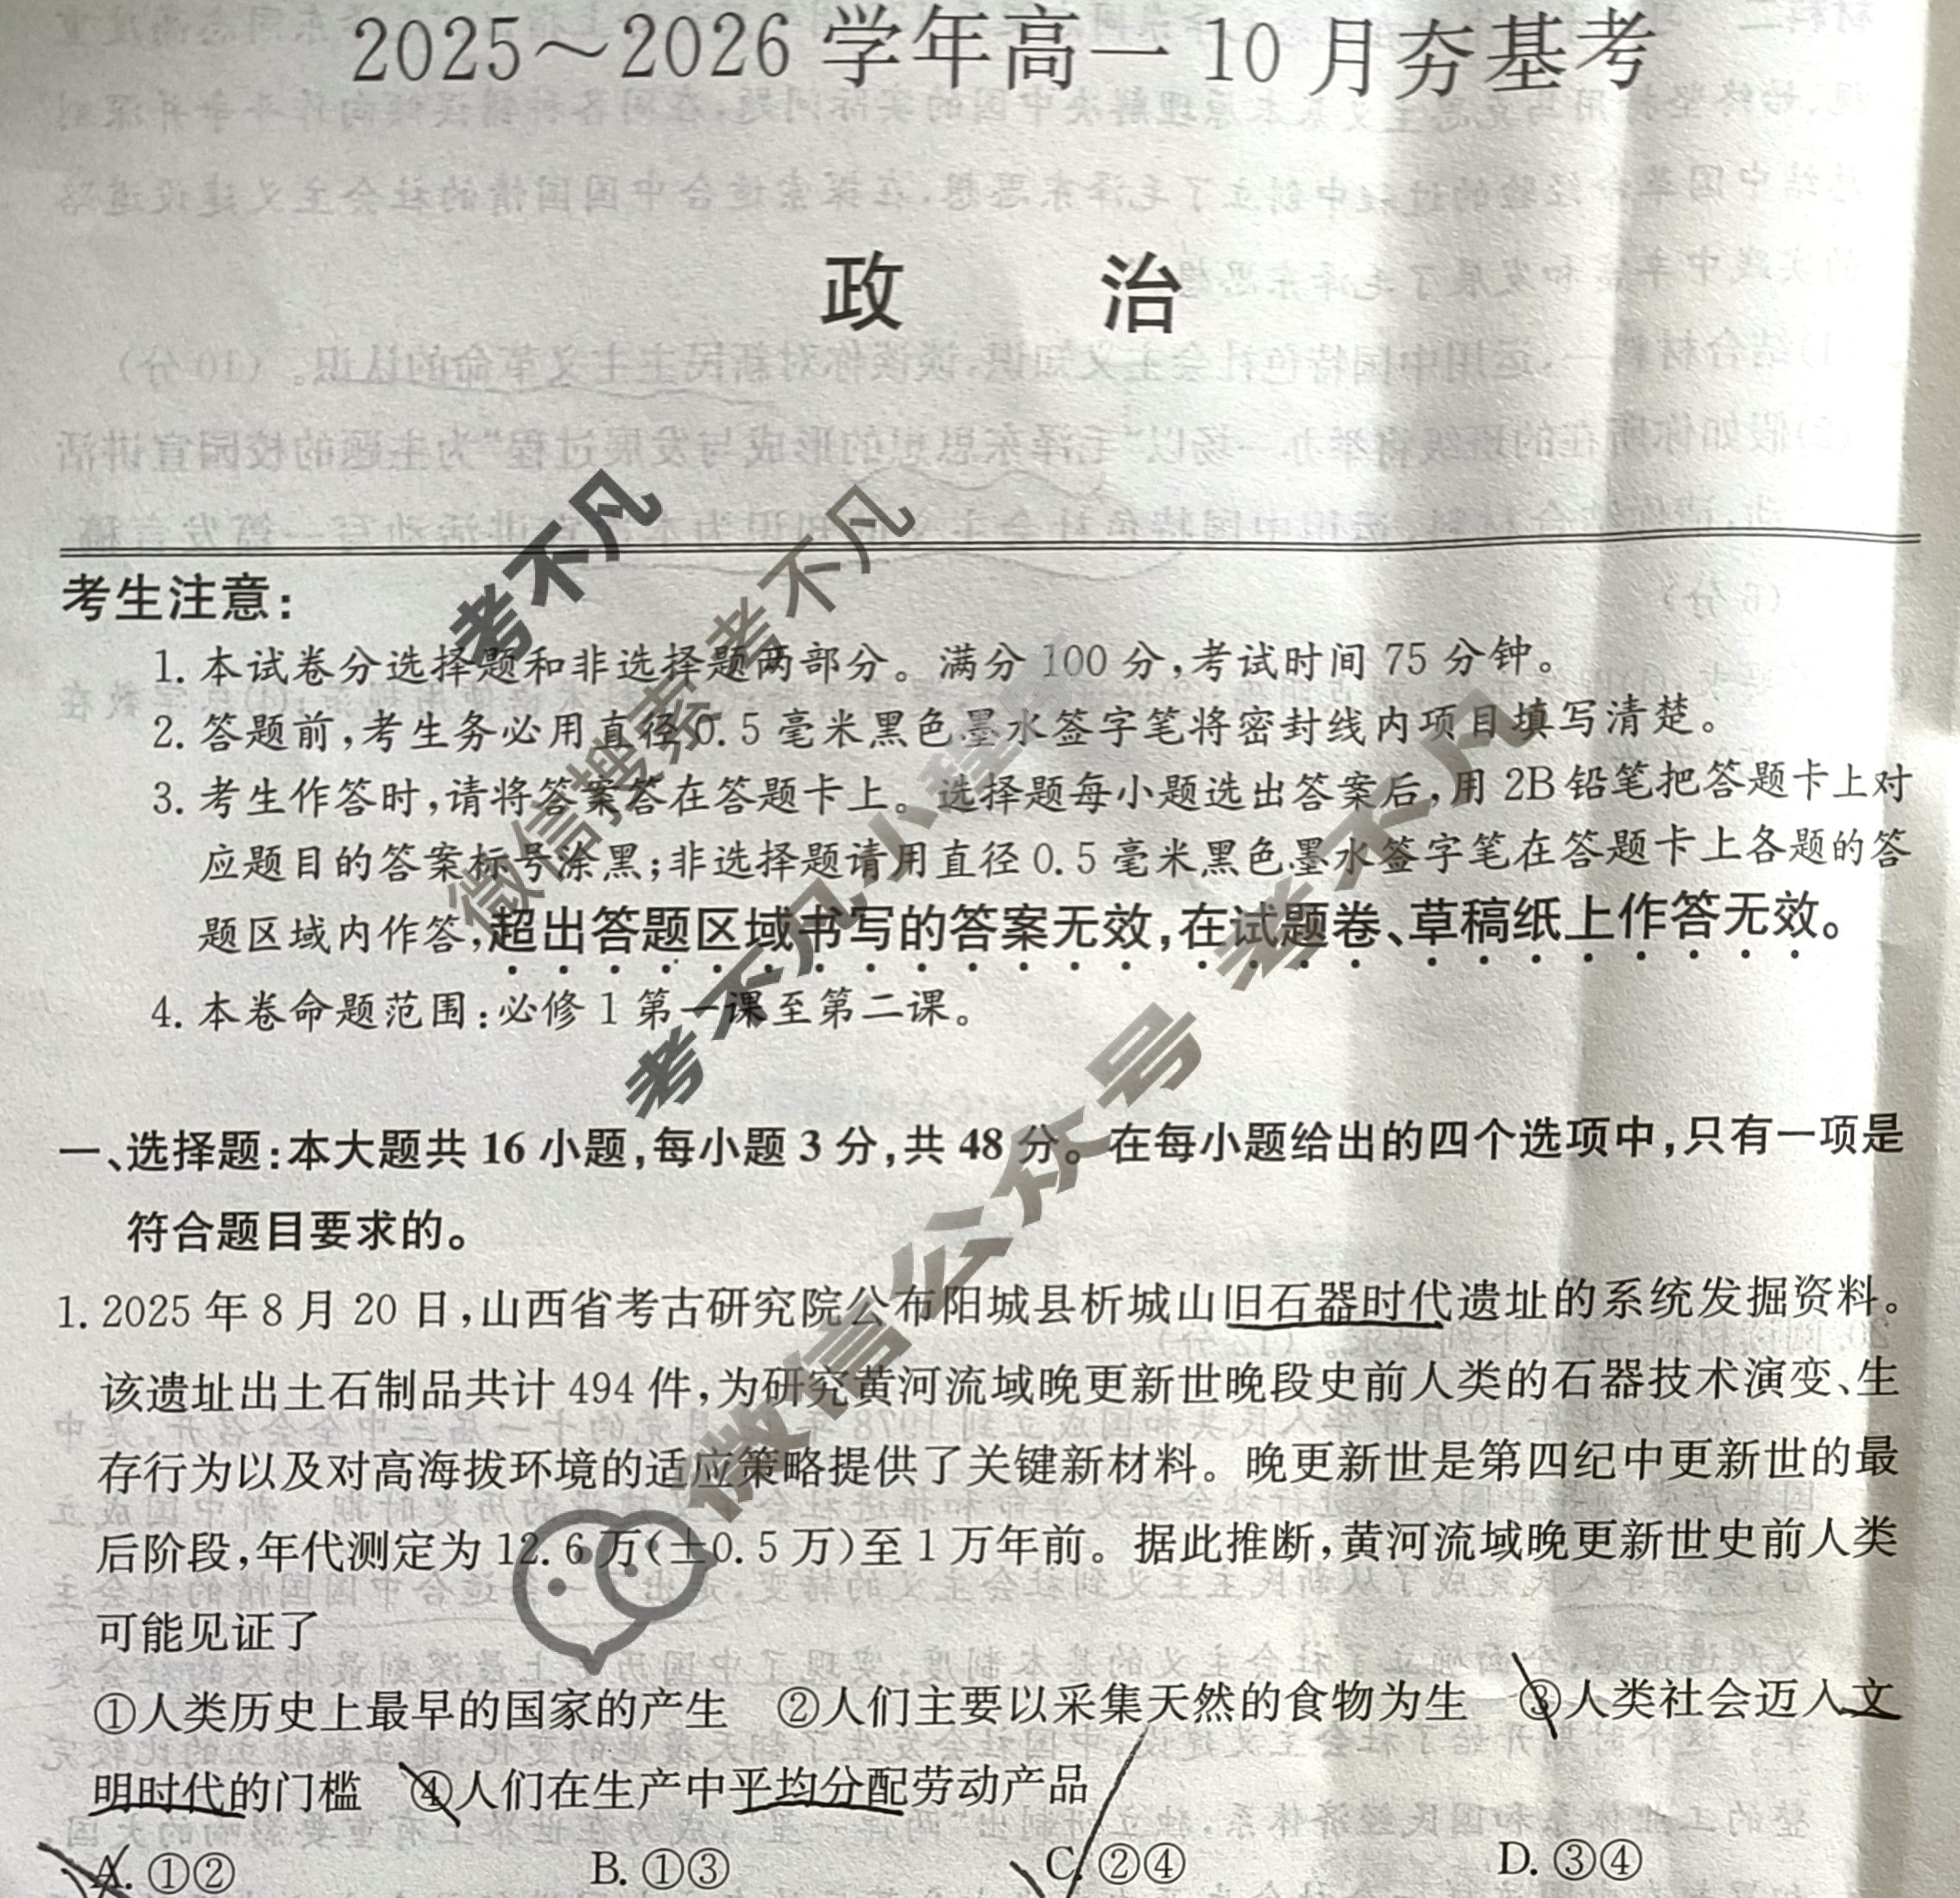 2025～2026学年高一10月夯基考
政 治
考生注意：
1. 本试卷分选择题和非选择题两部分。满分100分，考试时间75分钟。
2. 答题前，考生务必用直径0.5毫米黑色墨水签字笔将密封线内项目填写清楚。
3. 考生作答时，请将答案答在答题卡上。选择题每小题选出答案后，用2B铅笔把答题卡上对
应题目的答案标号涂黑；非选择题请用直径0.5毫米黑色墨水签字笔在答题卡上各题的答
题区域内作答，超出答题区域书写的答案无效，在试题卷、草稿纸上作答无效。
4. 本卷命题范围：必修1第一课至第二课。
一、选择题：本大题共16小题，每小题3分，共48分。在每小题给出的四个选项中，只有一项是
符合题目要求的。
1. 2025年8月20日，山西省考古研究院公布阳城县析城山旧石器时代遗址的系统发掘资料。
该遗址出土石制品共计494件，为研究黄河流域晚更新世晚段史前人类的石器技术演变、生
存行为以及对高海拔环境的适应策略提供了关键新材料。晚更新世是第四纪中更新世的最
后阶段，年代测定为12.6万(±0.5万)至1万年前。据此推断，黄河流域晚更新世史前人类
可能见证了
①人类历史上最早的国家的产生 ②人们主要以采集天然的食物为生 ③人类社会迈入文
明时代的门槛 ④人们在生产中平均分配劳动产品
A. ①② B. ①③ C. ②④ D. ③④
考不凡
微信搜索 考不凡
考不凡·小程序
微信公众号 考不凡